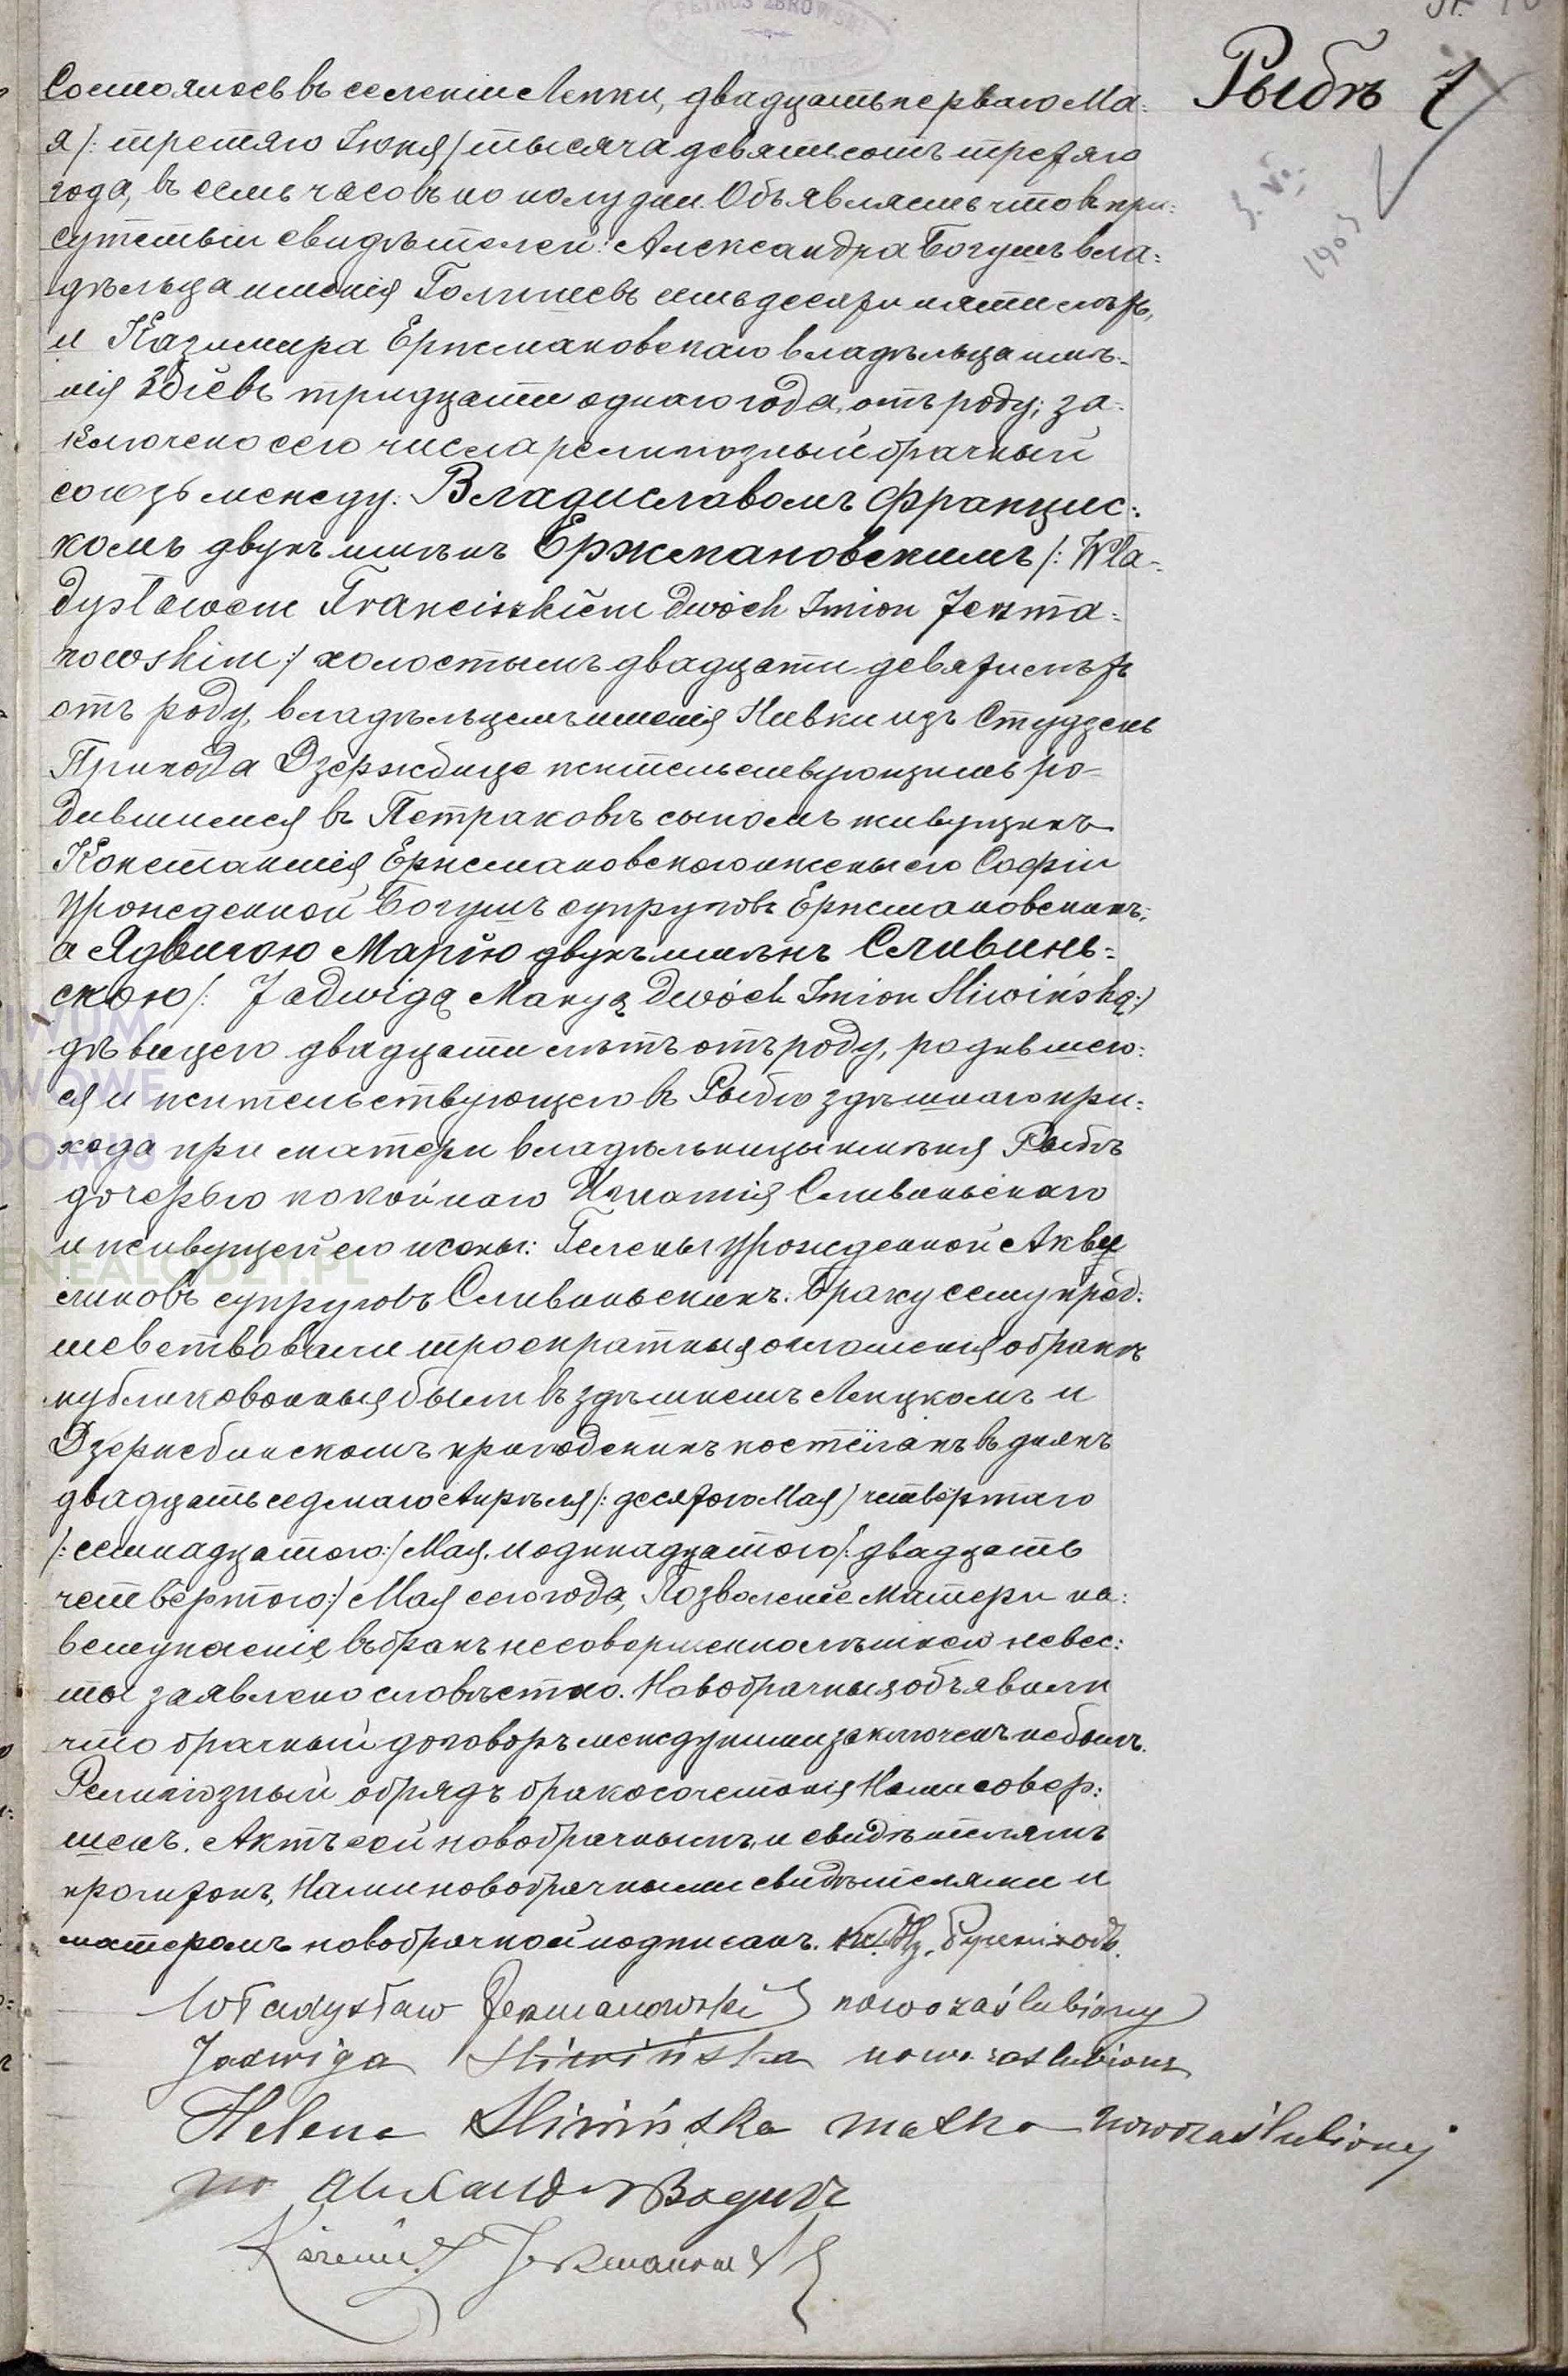 Рыбѣ 7
Состоялось въ селеніи Лепки, двадцать перваго Ма-
я /: третяго Іюня / тысяча девятьсотъ третяго
года, въ семь часовъ по полудни. Объявляемъ что въ при:
сутствіи свидѣтелей: Александра Богушъ вла:
дѣльца имѣнія семьдесяти пяти лѣтъ,
и Казимира Ержмановскаго владѣльца имѣ-
нія Здіевъ тридцати однаго года, отъ роду; за-
ключено сего числа религіозный брачный
союзъ между: Владиславомъ Францис:
комъ двухъ имянъ Ержмановскимъ /: Wła-
dysławem Franciszkiem dwóch Imion Jerzma:
nowskim :/ холостымъ двадцати девяти лѣтъ
отъ роду, владѣльцемъ имѣнія Нивки изъ Студзень
Прихода Дзержбице жительствующимъ ро-
дившимся въ Петраковѣ сыномъ живущихъ
Константія Ержмановского и жены его Софіи
урожденной Богушъ супруговъ Ержмановскихъ;
а Ядвигою Маріею двухъ имянъ Сливинь-
скою /: Jadwigą Maryą dwóch Imion Sliwińską :/
дѣвицею двадцати лѣтъ отъ роду, родившею:
ся и жительствующею въ Рыбѣ здѣшняго при:
хода при матери владѣльницы имѣнія Рыбѣ
дочерью покойнаго Игнатія Сливиньскаго
и живущей его жены: Гелены урожденной
супруговъ Сливиньскихъ. Браку сему пред:
шевствовали троекратныя оглошенія о бракѣ
публикованныя были въ здѣшнемъ Лепкомъ и
Дзержбинскомъ приходскихъ костёлахъ въ дняхъ
двадцать седмаго Апрѣля /: десятого Мая / четвёртаго
/: семнадцатого :/ Мая, и одинадцатого /: двадцать
четвёртого :/ Мая сего года, Позволеніе матери на:
вступленіе въ бракъ несовершеннолѣтней невес:
ты заявлено словѣстно. Новобрачныя объявили
что брачный договоръ между ними заключенъ небылъ.
Религіозный обрядъ бракосочетанія Нами совер:
шенъ. Актъ сей новобрачнымъ, и свидѣтелямъ
прочитанъ, Нами новобрачными свидѣтелями и
матерью новобрачной подписанъ.
Władysław Jerzmanowski nowozaślubiony
Jadwiga Sliwińska nowo zaślubiona
Helena Sliwińska matka nowozaślubionej
Alexander Bogusz
Kazimierz Jerzmanowski